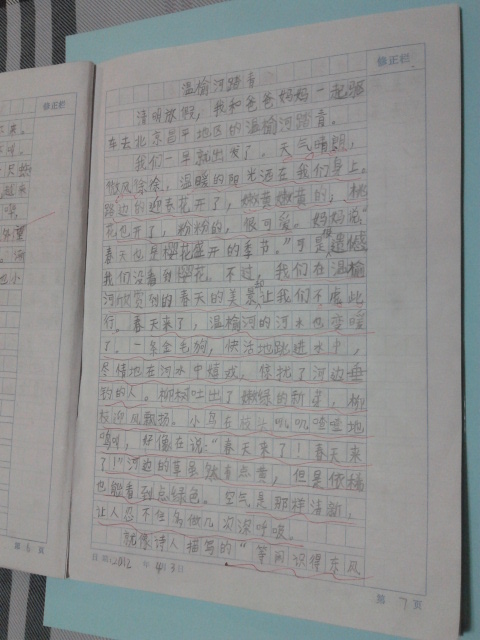 修正栏
修正栏
温榆河踏青
清明放假，我和爸爸妈妈一起驱
车去北京昌平地区的温榆河踏青。
我们一早就出发了。天气晴朗，
微风徐徐，温暖的阳光洒在我们身上。
路边的迎春花开了，嫩黄嫩黄的，桃
花也开了，粉粉的，很可爱。妈妈说“
春天也是樱花盛开的季节。”可是遗憾
我们没看到樱花。不过，我们在温榆
河欣赏到的春天的美景让我们不虚此
行。春天来了，温榆河的河水也变暖
了。一条金毛狗，快活地跳进水中，
尽情地在河水中嬉戏，惊扰了河边垂
钓的人。柳树吐出了嫩绿的新芽，柳
枝迎风飘扬。小鸟在枝头叽叽喳喳地
鸣叫，好像在说：“春天来了！春天来
了！”河边的草虽然有点黄，但是依稀
也能看到点绿色。空气是那样清新，
让人忍不住多做几次深呼吸。
就像诗人描写的“等闲识得东风
日期：2012 年 4月3日
第 7 页